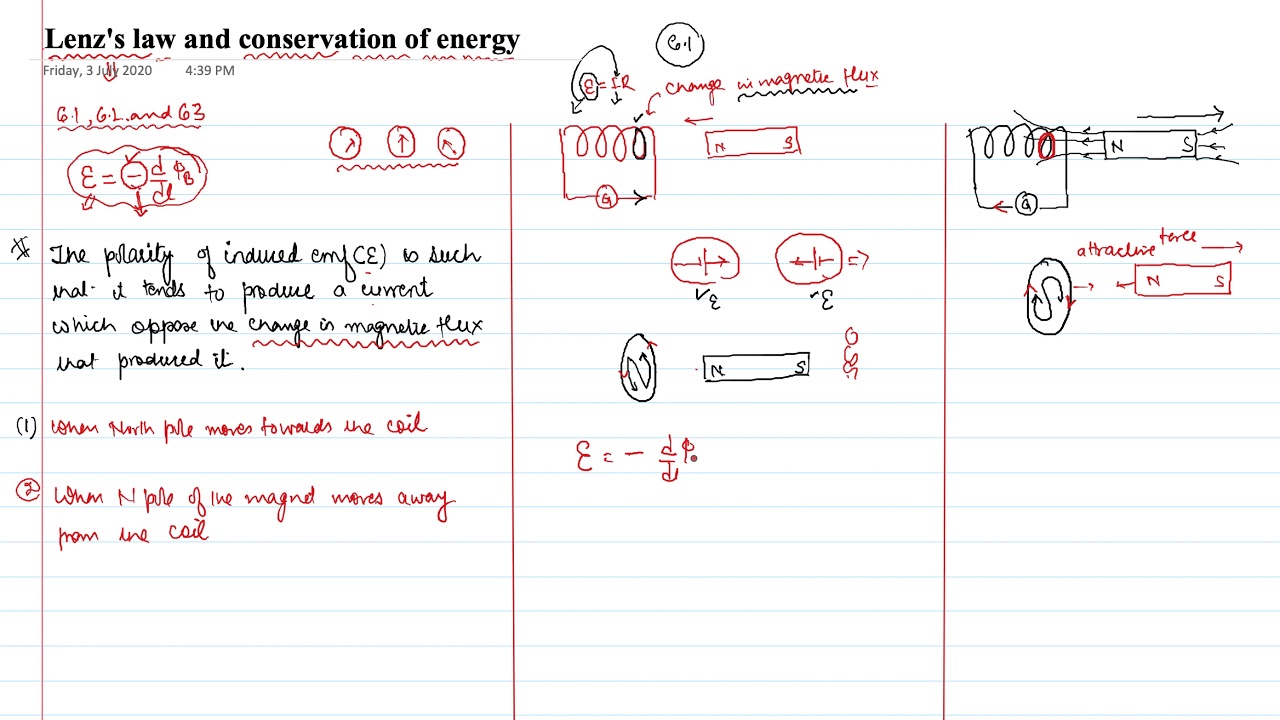 Lenz's law and conservation of energy
Friday, 3 July 2020 4:39 PM
6.1, 6.2 and 6.3
ε = - d/dt ΦB
The polarity of induced emf (ε) is such
that it tends to produce a current
which oppose the change in magnetic flux
that produced it.
(1) When North pole moves towards the coil
(2) When N pole of the magnet moves away
from the coil
6.1
ε = IR
change in magnetic flux
N S
G
ε ε
N
N S
ε = - d/dt Φ
N S
G
attractive force
S
N S